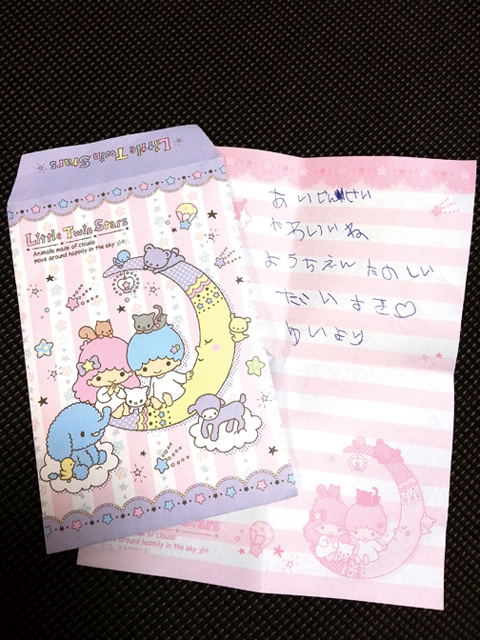 Little Twin Stars
Little Twin Stars
Animals made of clouds
move around happily in the sky
あいせんせい
かわいいね
ようちえんたのしい
だいすき♡
ゆいより
Little Twin Stars
Animals made of clouds
move around happily in the sky